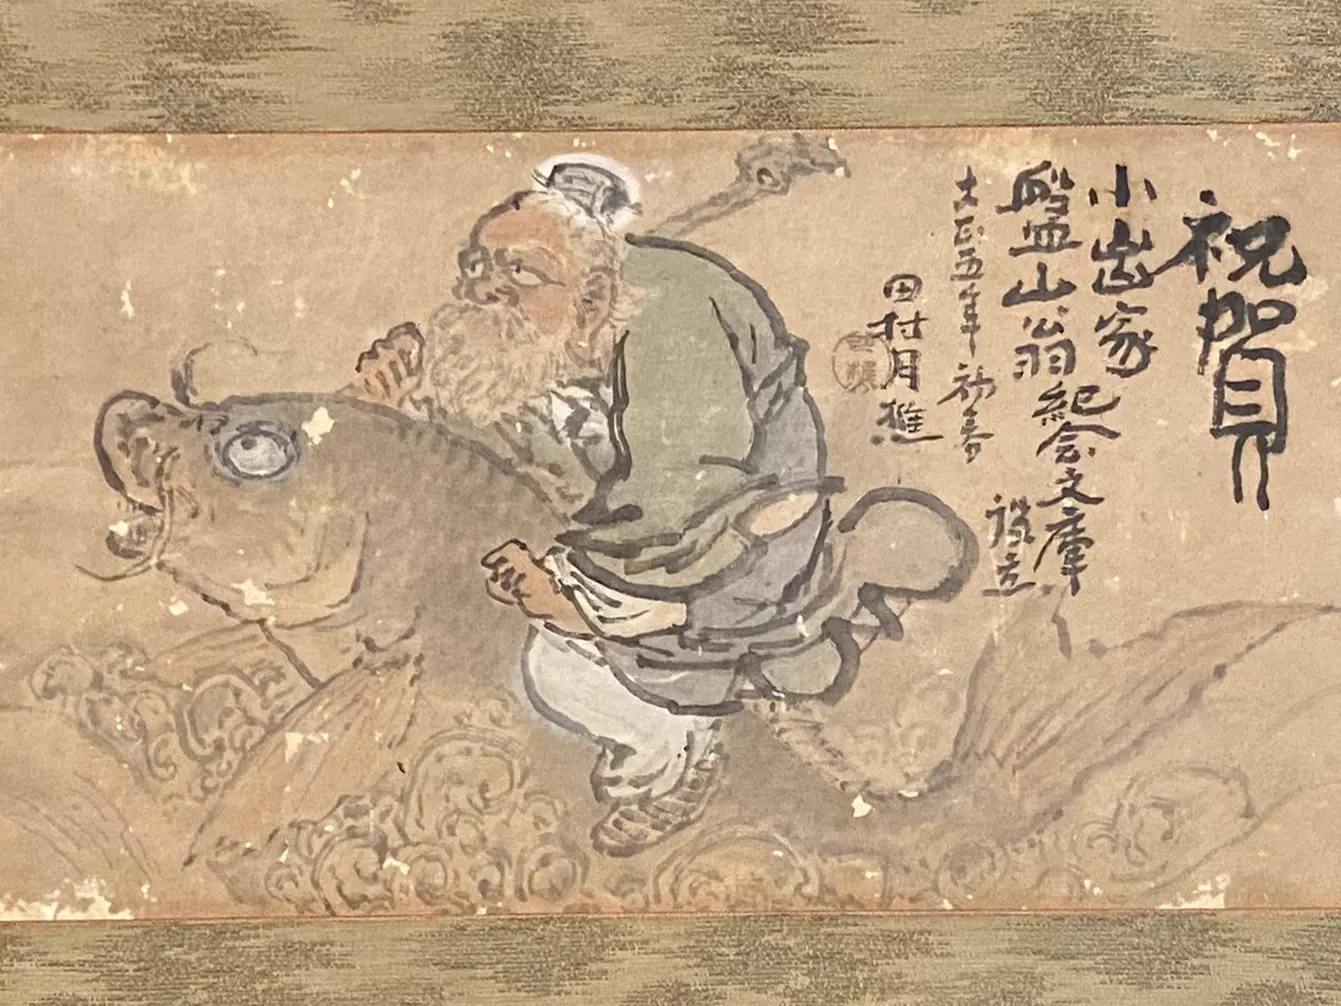 祝賀
小出家
盤山翁紀念文庫
設立
大正五年初春
田村月樵